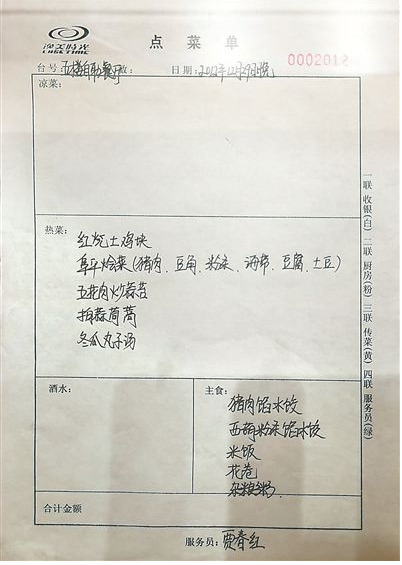 逸美时光
点菜单
0002012
台号:五楼自助餐厅 数: 日期:2012年12月29日晚
凉菜:
热菜:
红烧土鸡块
阜平烩菜(猪肉、豆角、粉条、海带、豆腐、土豆)
五花肉炒蒜苔
拍蒜茼蒿
冬瓜丸子汤
酒水:
主食:
猪肉馅水饺
西葫粉条馅水饺
米饭
花卷
杂粮粥
合计金额
服务员:贾春红
一联 收银(白) 二联 厨房(粉) 三联 传菜(黄) 四联 服务员(绿)